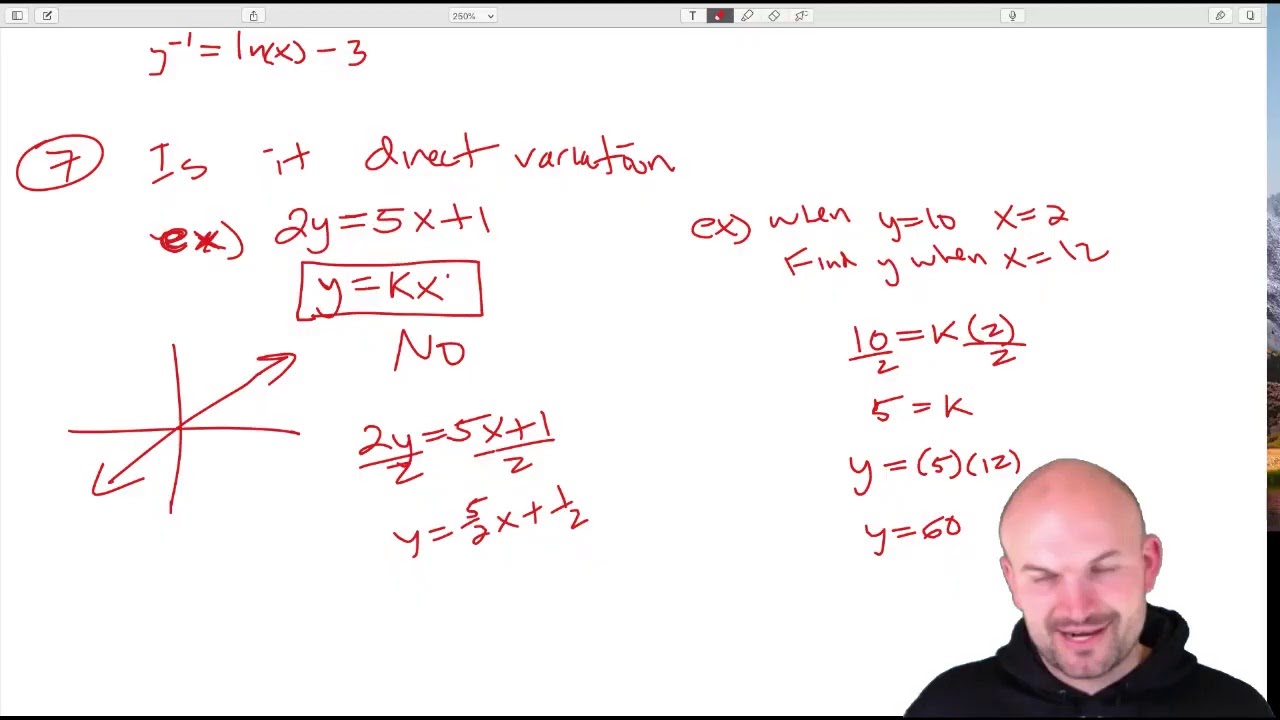 250%
T
y⁻¹ = ln(x) - 3
7 Is it direct variation
ex) 2y = 5x + 1
y = Kx
NO
2y = 5x + 1
2 2
y = 5/2 x + 1/2
ex) when y = 10 x = 2
Find y when x = 12
10 = K(2)
2 2
5 = K
y = (5)(12)
y = 60